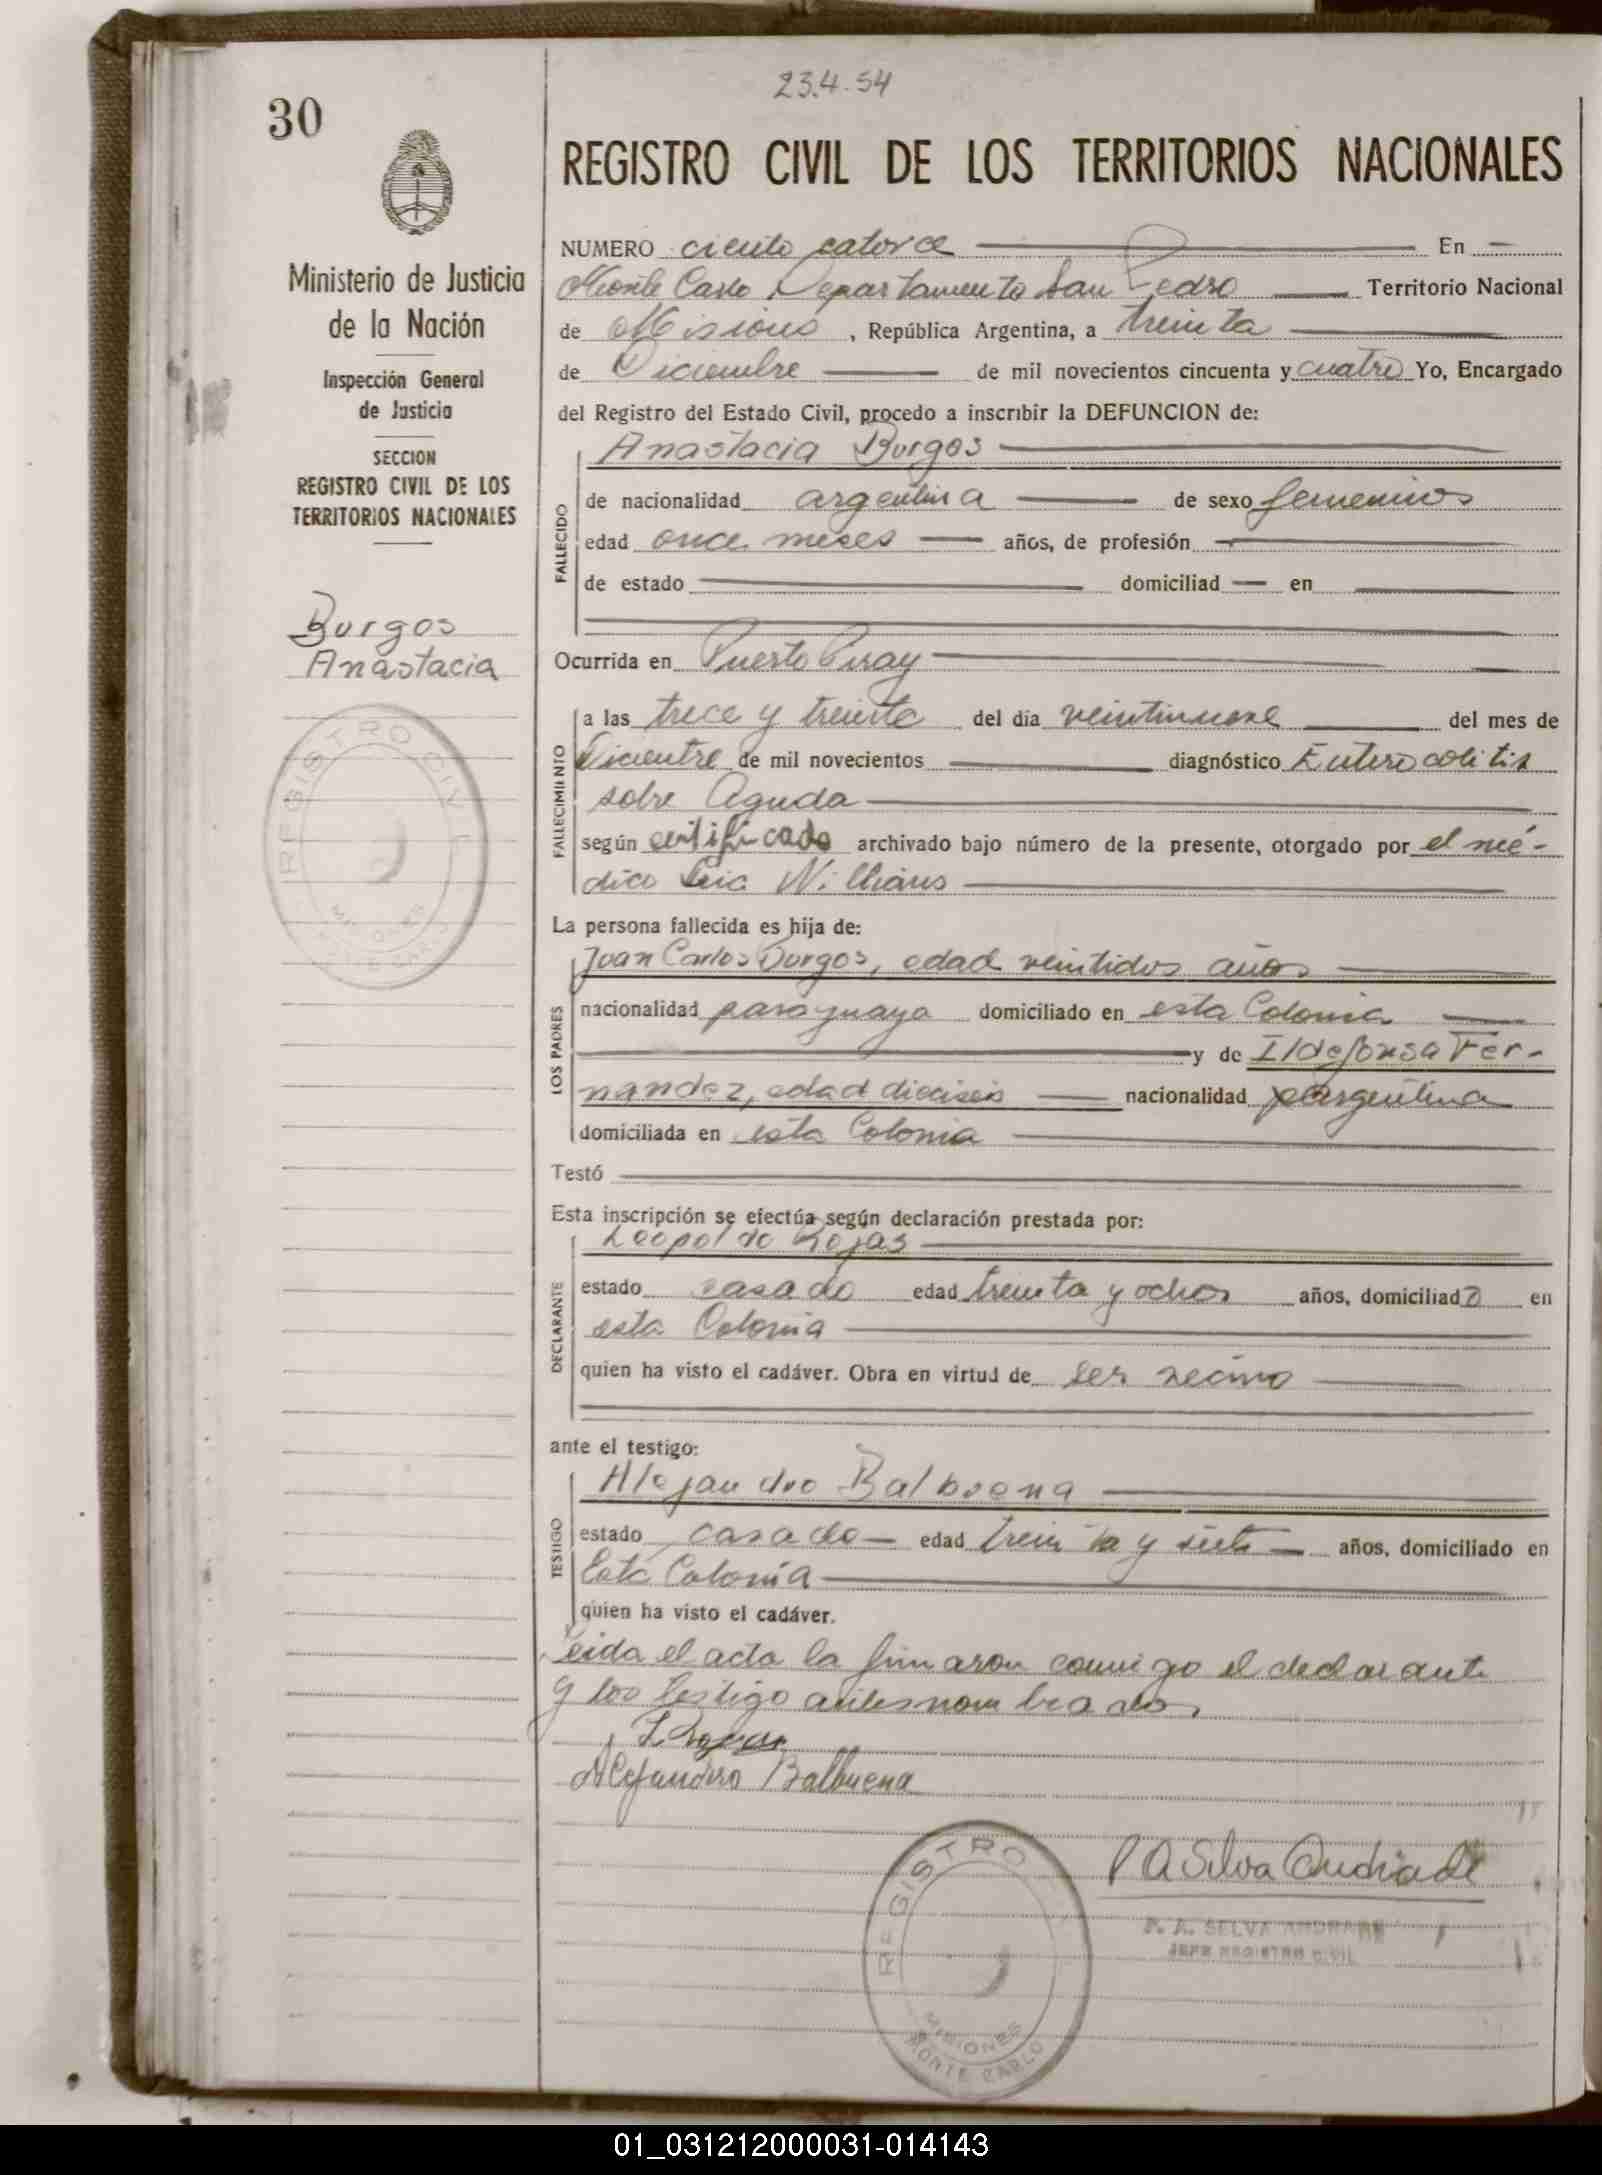 23.4.54
30
REGISTRO CIVIL DE LOS TERRITORIOS NACIONALES
Ministerio de Justicia
de la Nación
Inspección General
de Justicia
SECCION
REGISTRO CIVIL DE LOS
TERRITORIOS NACIONALES
Burgos
Anastacia
REGISTRO CIVIL
NUMERO ciento catorce En
Monte Carlo Departamento San Pedro Territorio Nacional
de Misiones, República Argentina, a treinta
de Diciembre de mil novecientos cincuenta y cuatro Yo, Encargado
del Registro del Estado Civil, procedo a inscribir la DEFUNCION de:
Anastacia Burgos
FALLECIDO
de nacionalidad argentina de sexo femenino
edad once meses años, de profesión
de estado domiciliad en
Ocurrida en Puerto Piray
FALLECIMIENTO
a las trece y treinta del día veintinueve del mes de
Diciembre de mil novecientos diagnóstico Enterocolitis
sobre Aguda
según certificado archivado bajo número de la presente, otorgado por el mé-
dico Willians
La persona fallecida es hija de:
LOS PADRES
Juan Carlos Burgos, edad veintidos años
nacionalidad paraguaya domiciliado en esta Colonia
y de Ildefonsa Fer-
nandez, edad dieciseis nacionalidad argentina
domiciliada en esta Colonia
Testó
Esta inscripción se efectúa según declaración prestada por:
DECLARANTE
Leopoldo Rojas
estado casado edad treinta y ocho años, domiciliado en
esta Colonia
quien ha visto el cadáver. Obra en virtud de ser vecino
ante el testigo:
TESTIGO
Alejandro Balbuena
estado casado edad treinta y siete años, domiciliado en
Esta Colonia
quien ha visto el cadáver.
Leida el acta la firmaron conmigo el declarante
y los testigo antesnombrados
Alejandro Balbuena
P A Silva Andrade
P. A. SELVA ANDRADE
JEFE REGISTRO CIVIL
REGISTRO
MISIONES
MONTE CARLO
01_031212000031-014143